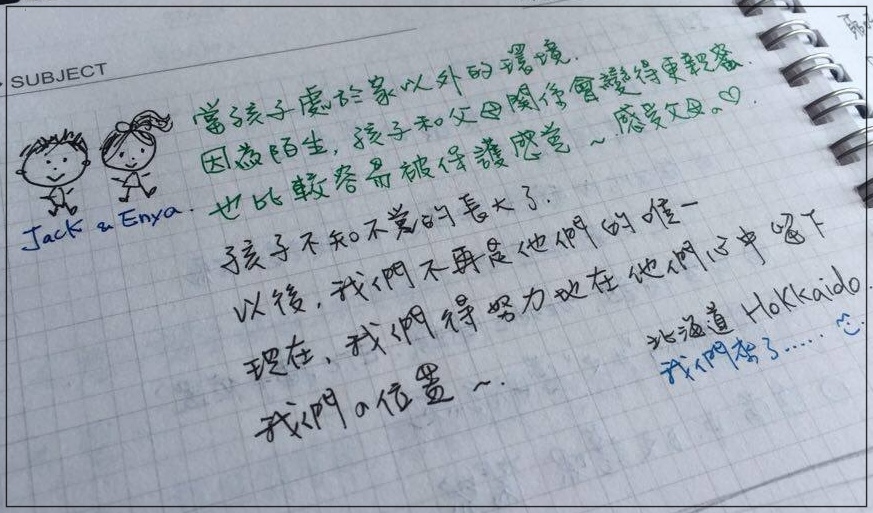 SUBJECT
當孩子處於家以外的環境.
因為陌生, 孩子和父母關係會變得更親密.
也比較容易被保護感覺~感覺父母。♡.
Jack & Enya.
孩子不知不覺的長大了.
以後, 我們不再是他們的唯一
現在, 我們得努力地在他們心中留下
我們の位置~.
北海道 Hokkaido.
我們來了.....